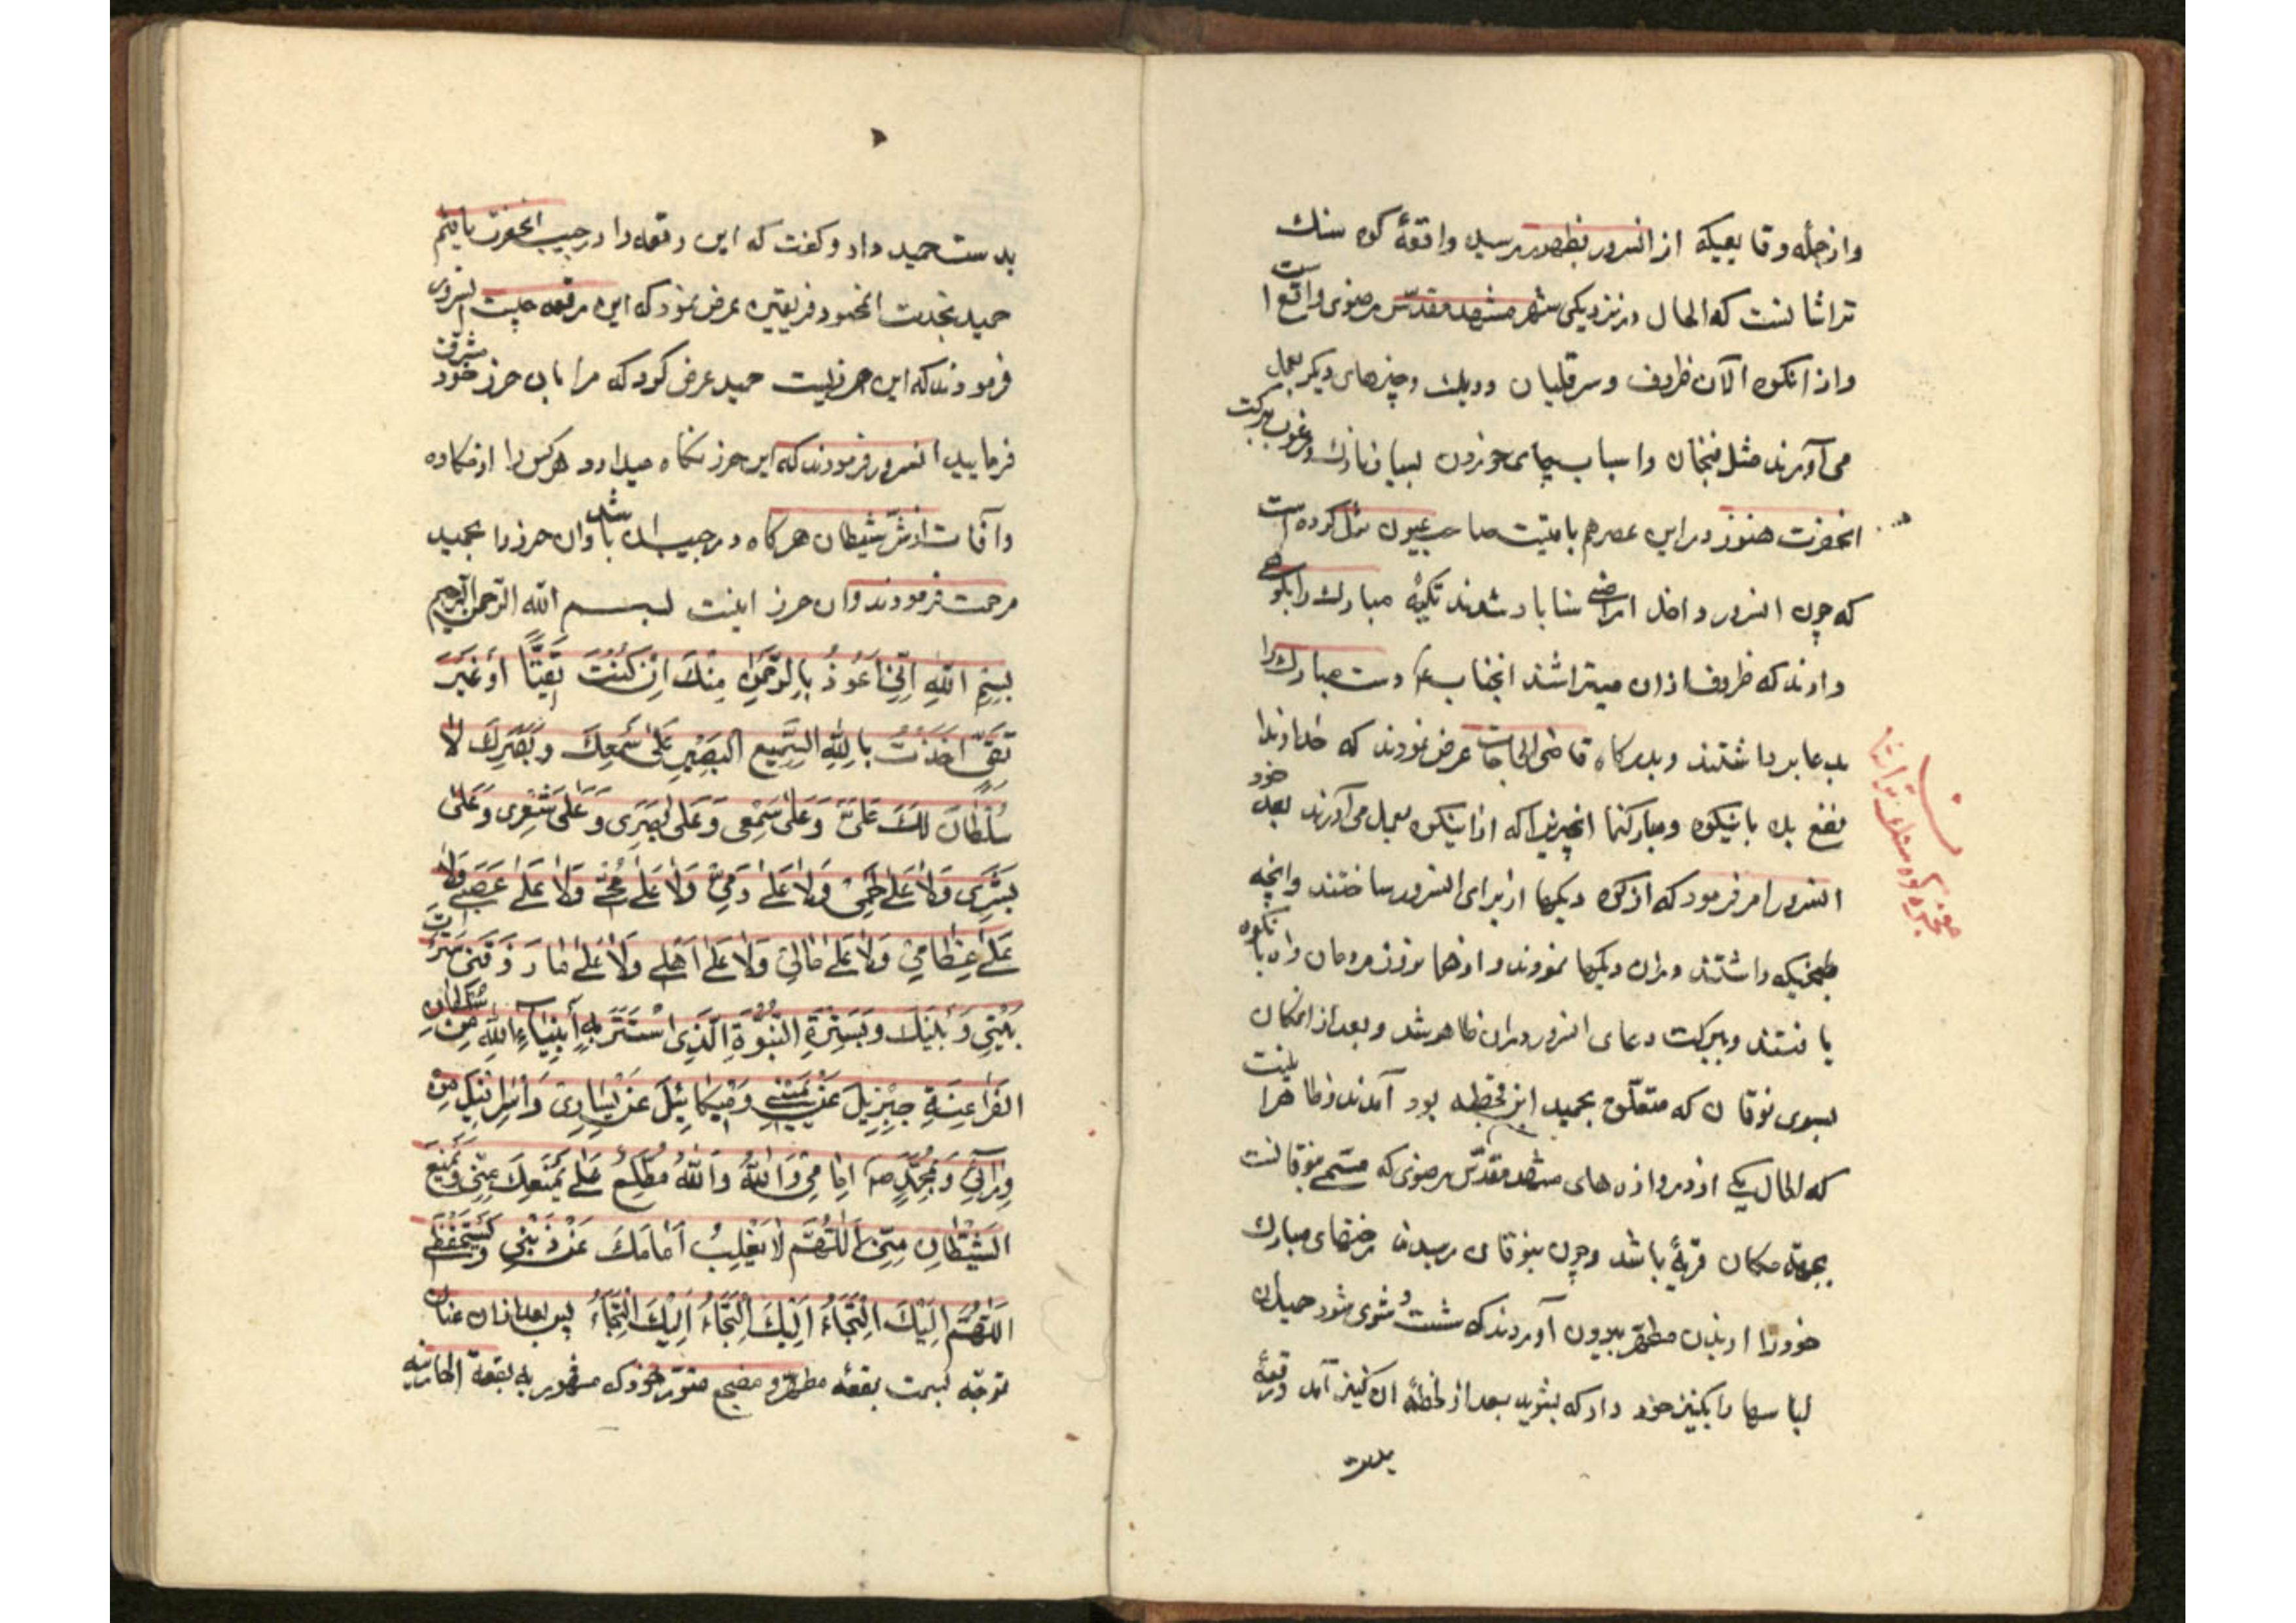 واز جمله وقایعیکه از انسرور بظهور رسید واقعهٔ کوه سنك
تراشانست که الحال در نزدیکی شهر مشهد مقدّس رضوی واقع است
واز انکوه الآن ظروف وسرقلیان ودیك وچیزهای دیکر بعمل
می آورند مثل فنجان واسباب چای خوردن بسیار نازك ومرغوب ببرکت
انحضرت هنوز در این عصر هم باقیست صاحب عیون نقل کرده است
که چون انسرور داخل اراضی سناباد شدند تکیهٔ مبارك را بکوهی
دادند که ظروف ازان میتراشند انجناب ع دست مبارك را
بدعا برداشتند وبدرکاه قاضی الحاجات عرض نمودند که خداوندا
نفع بده باینکوه ومبارك نما انچیزیرا که ازاینکوه بعمل می آورند بعد خود
انسرور امر فرمود که ازکوه دیکها از برای انسرور ساختند وانچه
طبخیکه داشتند دران دیکها نمودند وازهمانروز مردمان راه بانکوه
یافتند وببرکت دعای انسرور دران ظاهر شد وبعد از انمکان
بسوی نوقان که متعلّق بحمید ابن قحطبه بود آمدند وظاهرا اینست
که الحال یکی از دروازه های مشهد مقدّس رضوی که مسمّی بنوقانست
بجهة مکان قریهٔ باشد وچون بنوقان رسیدند رختهای مبارك
خودرا از بدن مطهّر بیرون آوردند که شست وشوی شود حمید ان
لباسها را بکنیز خود داد که بشوید بعد از لحظهٔ ان کنیز آمد ورقعهٔ
بدست
معجزه کوه سنك تراشان
بدست حمید داد وکفت که این رقعه را در جیب انحضرت یافتم
حمید بخدمت انحضرت عرض نمود که این رقعه چیست انسرور
فرمودند که این حرزیست حمید عرض کرد که مرا بان حرز خود مشرف
فرمایید انسرور فرمودند که این حرز نکاه میدارد هرکس را از مکاره
وآفات از شرّ شیطان هرکاه در جیب ان باشد وان حرز را بحمید
مرحمت فرمودند وان حرز اینست بسم الله الرّحمن الرّحیم
بِسْمِ اللّهِ اِنّی اَعُوذُ بِالرَّحْمنِ مِنْكَ اِنْ كُنْتَ تَقِیًّا اَوْ غَیْرَ
تَقِیٍّ اَخَذْتُ بِاللّهِ السَّمیعِ البَصیرِ عَلی سَمْعِكَ وَبَصَرِكَ لا
سُلْطانَ لَكَ عَلَیَّ وَعَلی سَمْعی وَعَلی بَصَری وَعَلی شَعْری وَعَلی
بَشَری وَلا عَلی لَحْمی وَلا عَلی دَمی وَلا عَلی مُخّی وَلا عَلی عَصَبی وَلا
عَلی عِظامی وَلا عَلی مالی وَلا عَلی اَهْلی وَلا عَلی ما رَزَقَنی سَتَرْتُ
بَیْنی وَبَیْنَكَ وَبِسِتْرَةِ النُّبُوَّةِ الَّذِی اسْتَتَرَ بِهِ اَنْبِیاءُ اللّهِ مِنْ سُلْطانِ
الفَراعِنَةِ جِبْرِیلَ عَنْ یَمینی وَمیکائیلَ عَنْ یَساری وَاِسْرافیلَ مِنْ
وَرائی وَمُحَمَّدٍ ص اَمامی وَاللّهُ وَاللّهُ مُطَّلِعٌ عَلی یَمْنَعُكَ عَنّی وَیَمْنَعُ
الشَّیْطانِ مِنّی اَللّهُمَّ لا یَغْلِبُ
اَللّهُمَّ اِلَیْكَ الْتَجَأْتُ اِلَیْكَ الْتَجَأْتُ اِلَیْكَ الْتَجَأْتُ پس بعد ازان عنان
توجّه بسمت بقعهٔ مطهّره ومضجع منوّر خود که مشهور به بقعهٔ الهارونیه